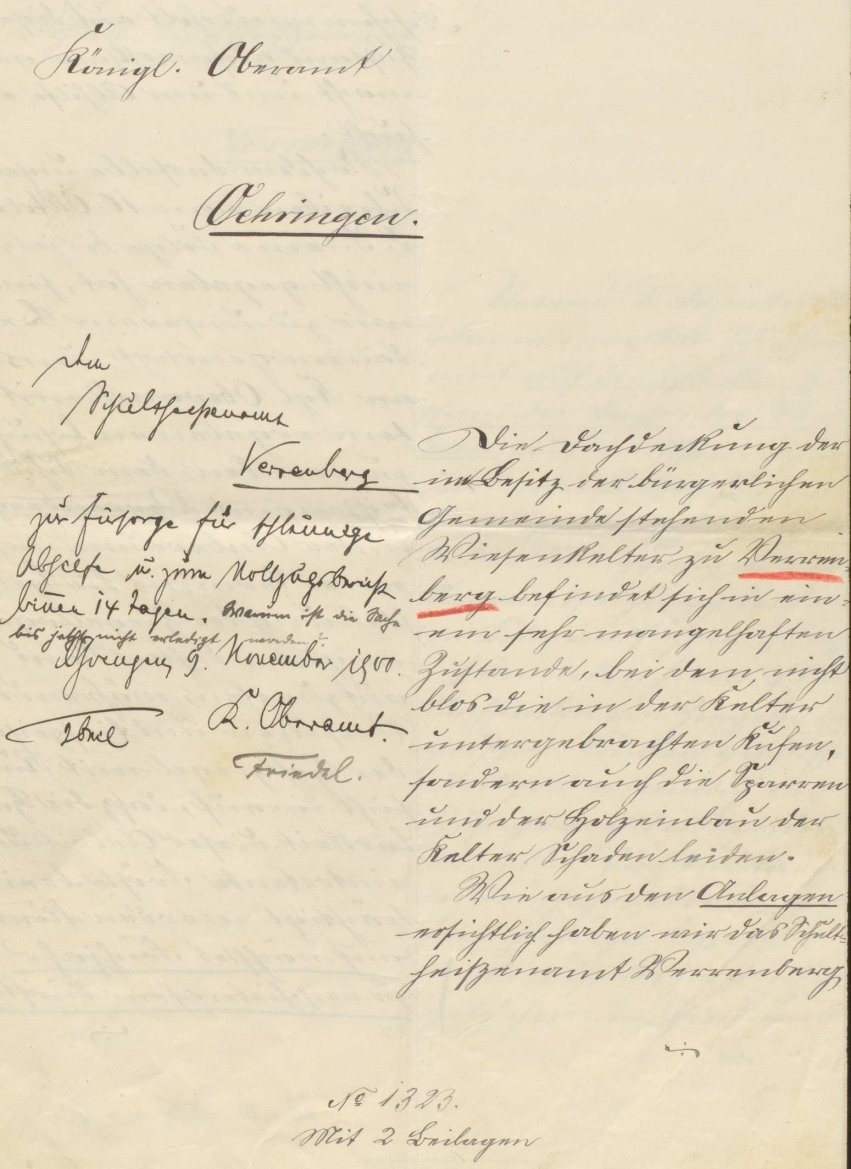 Königl. Oberamt
Oehringen.
Dem
Schultheißenamt
Verrenberg
zur Fürsorge für schleunige
Abhilfe u. zum Vollzugsbericht
binnen 14 Tagen. Warum ist die Sache
bis jetzt nicht erledigt worden?
Öhringen, 9. November 1900.
K. Oberamt.
Friedel.
Die Dachdeckung der
im Besitz der bürgerlichen
Gemeinde stehenden
Wiesenkelter zu Verren-
berg befindet sich in ein-
em sehr mangelhaften
Zustande, bei dem nicht
blos die in der Kelter
untergebrachten Kufen,
sondern auch die Sparren
und der Holzeinbau der
Kelter Schaden leiden.
Wie aus den Anlagen
ersichtlich haben wir das Schult-
heißenamt Verrenberg
No 1323.
Mit 2 Beilagen